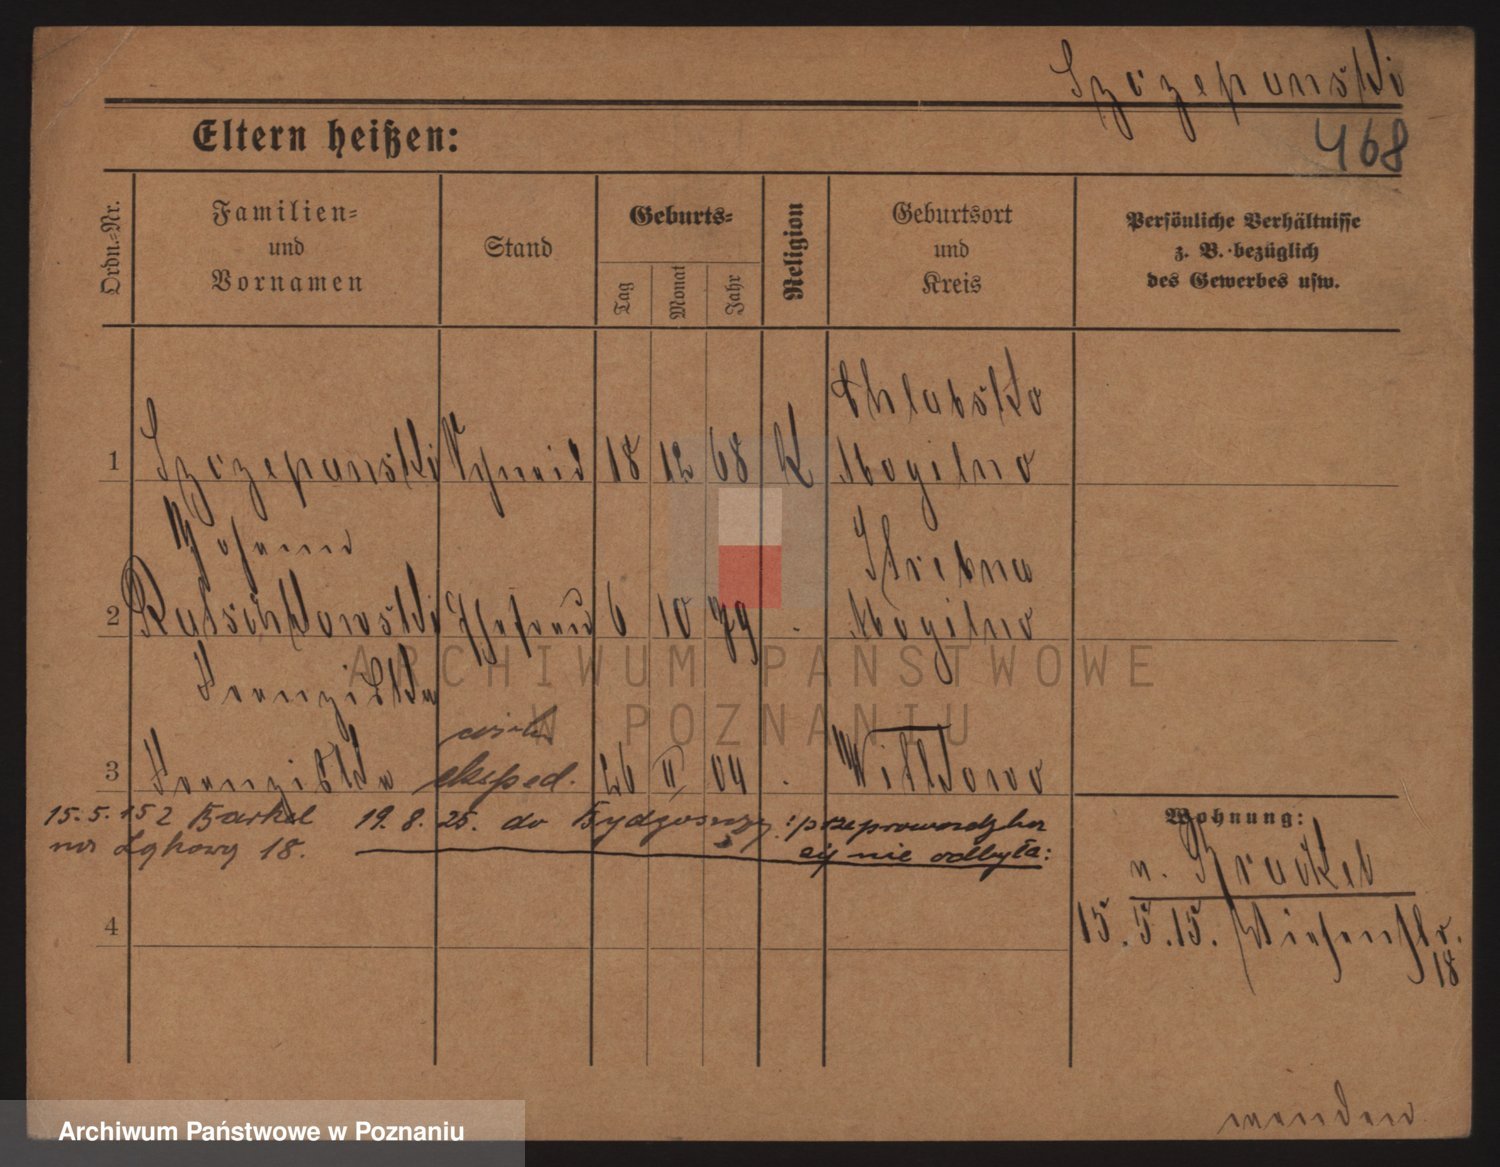 Szczepanski
468
Eltern heißen:
Ordn.-Nr.
Familien-
und
Vornamen
Stand
Geburts-
Tag
Monat
Jahr
Religion
Geburtsort
und
Kreis
Persönliche Verhältnisse
z. B. bezüglich
des Gewerbes usw.
Chlabsko
1 Szczepanski Schneid 18 12 68 K Mogilno
Johann
Strebna
2 Ratschkowski Ehefrau 6 10 79 Mogilno
Franziska
3 Franziska eksped. 26 II 04 Wittowo
15.5.15 z Barkel 19.8.25. do Bydgoszczy :przeprowadzka
na Łąkową 18. się nie odbyła:
4
Wohnung:
n.
15.5.15. Wiesenstr.
18
wenden
ARCHIWUM PAŃSTWOWE
W POZNANIU
Archiwum Państwowe w Poznaniu